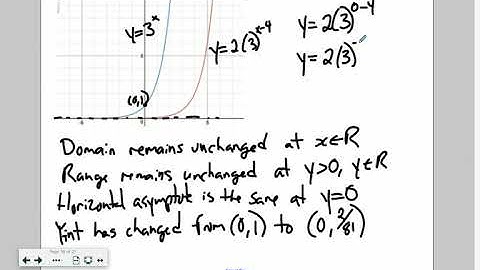 y=3^x
y=2(3)^{x-4}
(0,1)
y=2(3)^{0-4}
y=2(3)^-
Domain remains unchanged at x∈R
Range remains unchanged at y>0, y∈R
Horizontal asymptote is the same at y=0
Yint has changed from (0,1) to (0, 2/81)